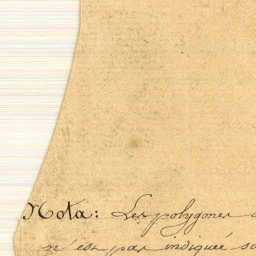 Nota: Les polygones
n'est pas indiquée